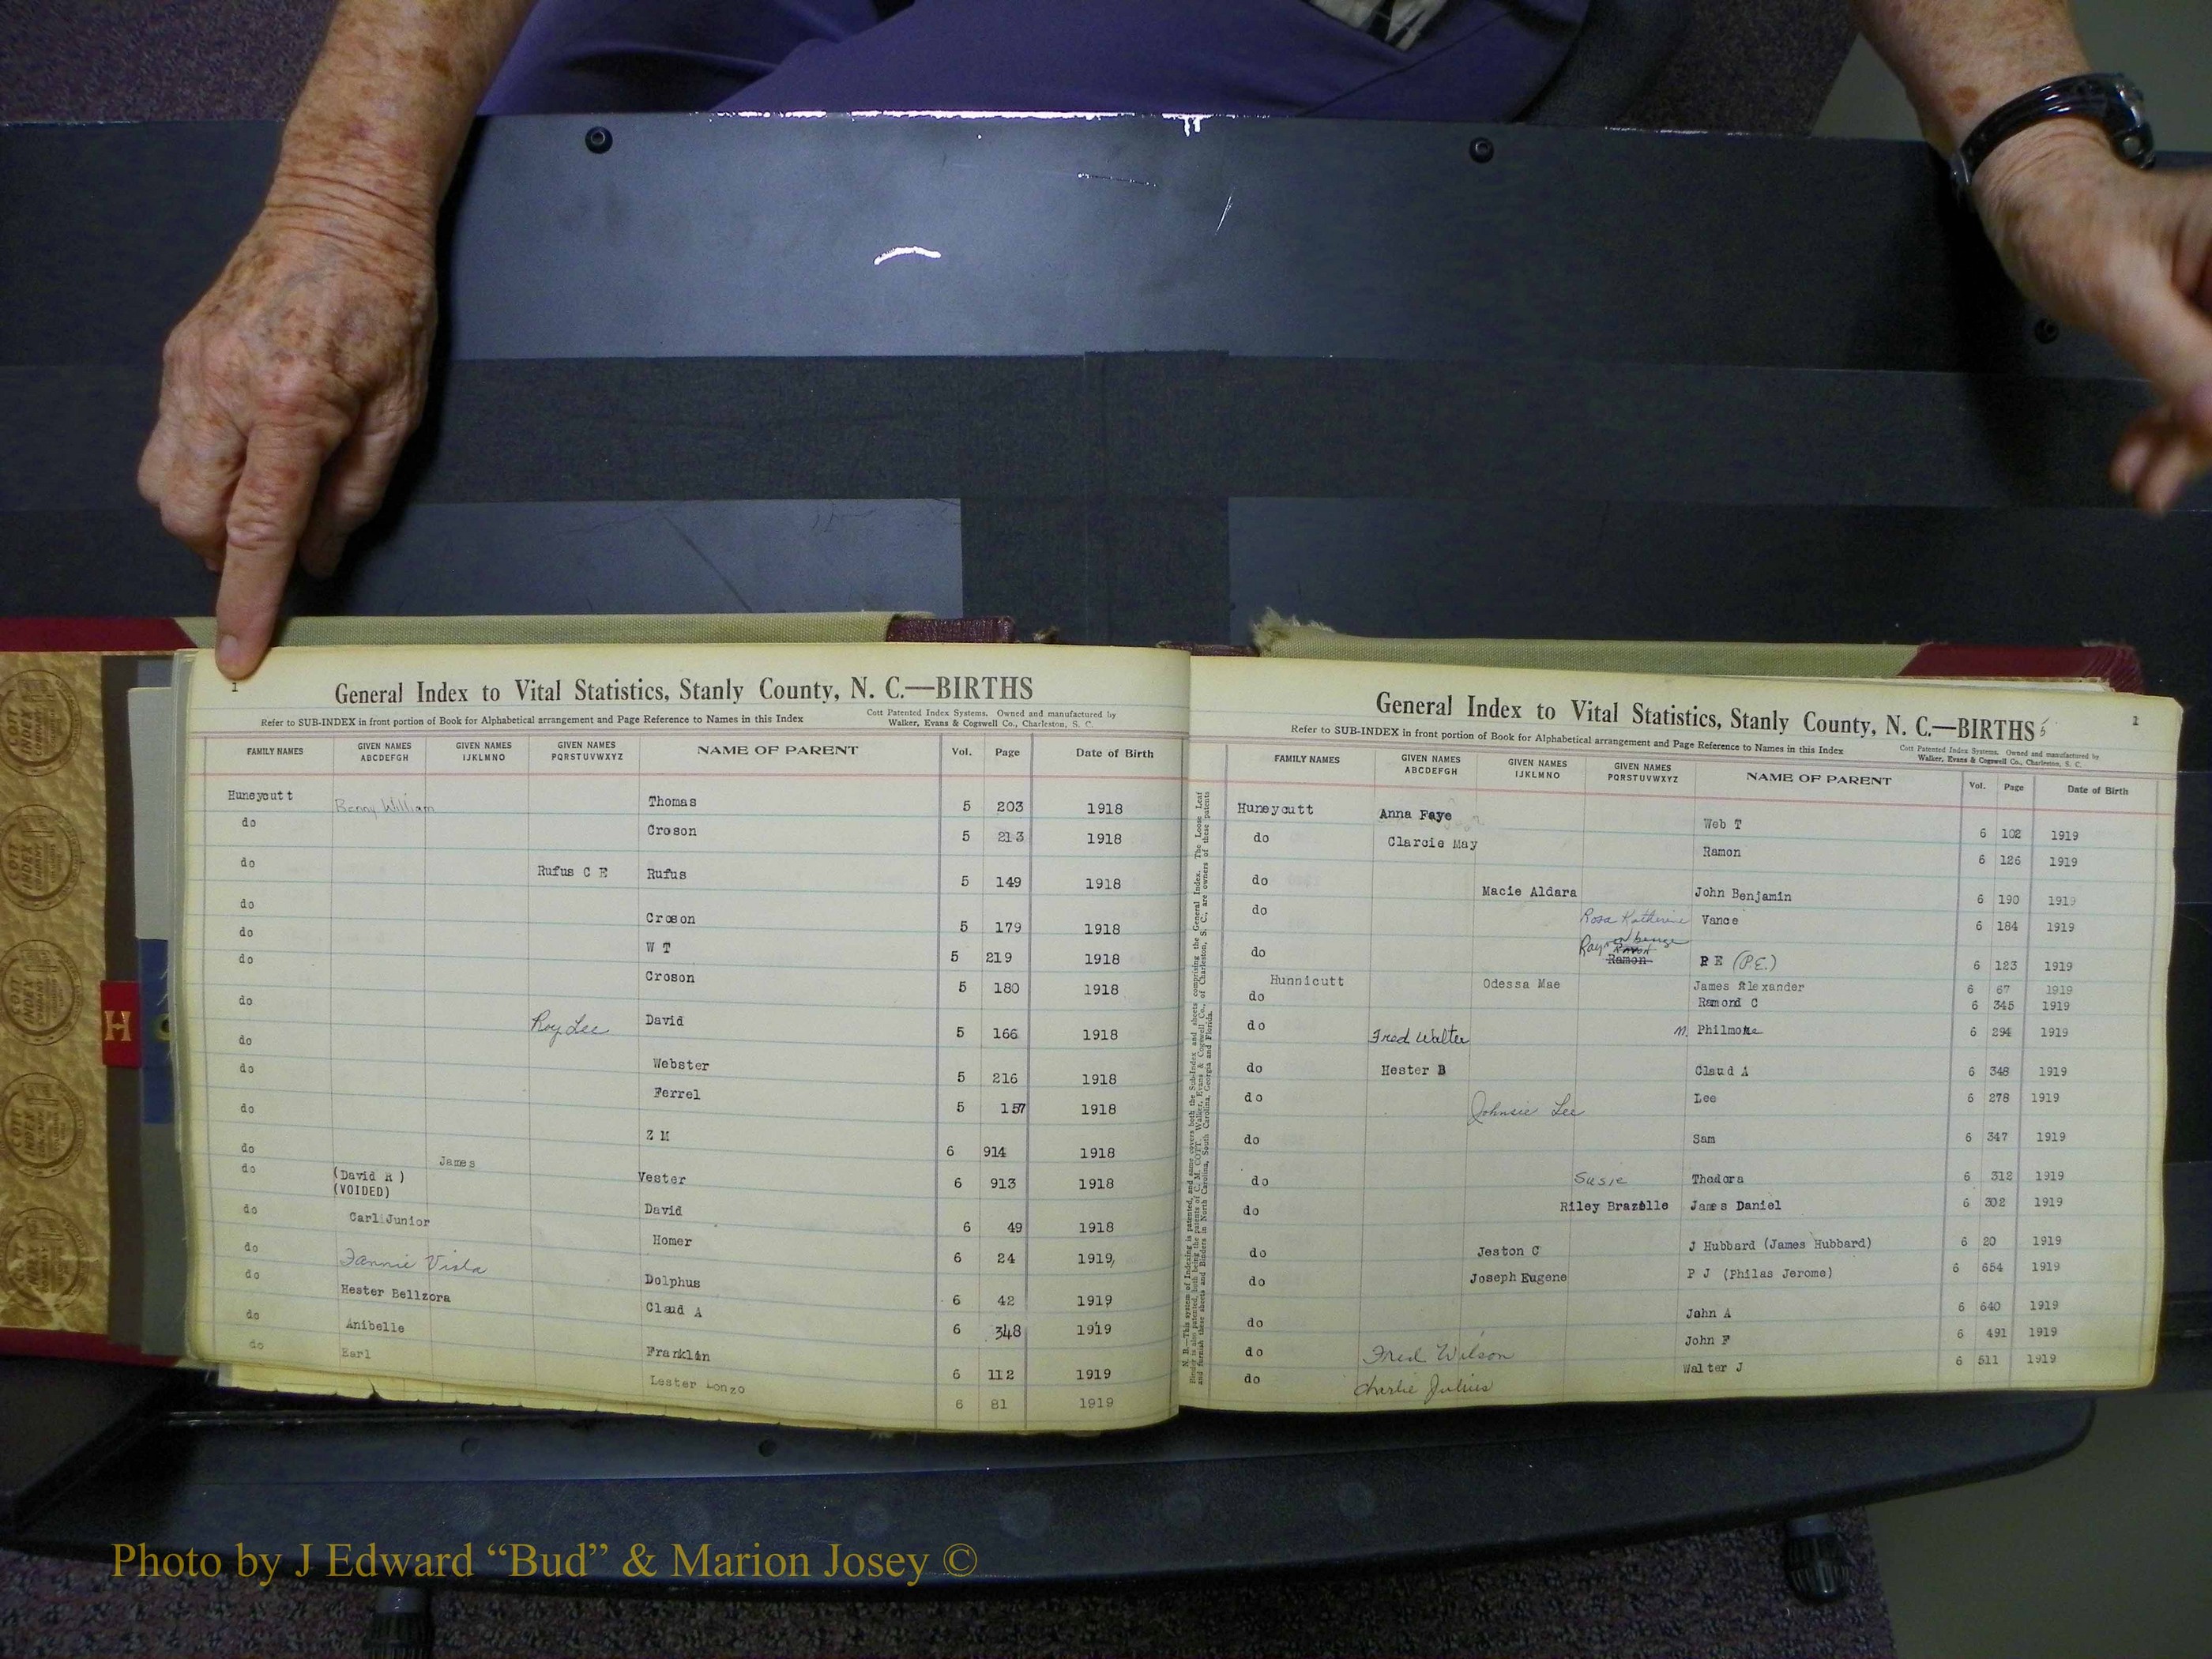 1
General Index to Vital Statistics, Stanly County, N. C.—BIRTHS
Refer to SUB-INDEX in front portion of Book for Alphabetical arrangement and Page Reference to Names in this Index
Cott Patented Index Systems. Owned and manufactured by
Walker, Evans & Cogswell Co., Charleston, S. C.
FAMILY NAMES GIVEN NAMES ABCDEFGH GIVEN NAMES IJKLMNO GIVEN NAMES PQRSTUVWXYZ NAME OF PARENT Vol. Page Date of Birth
Huneycutt Benny William Thomas 5 203 1918
do Croson 5 213 1918
do Rufus C E Rufus 5 149 1918
do Croson 5 179 1918
do W T 5 219 1918
do Croson 5 180 1918
do Roy Lee David 5 166 1918
do Webster 5 216 1918
do Ferrel 5 157 1918
do Z M 6 914 1918
do James Vester 6 913 1918
do (David R) David 6 49 1918
(VOIDED)
do Carl Junior Homer 6 24 1919
do Fannie Vista Dolphus 6 42 1919
do Hester Bellzora Claud A 6 348 1919
do Anibelle Franklin 6 112 1919
do Earl Lester Lonzo 6 81 1919
General Index to Vital Statistics, Stanly County, N. C.—BIRTHS
Refer to SUB-INDEX in front portion of Book for Alphabetical arrangement and Page Reference to Names in this Index
Cott Patented Index Systems. Owned and manufactured by
Walker, Evans & Cogswell Co., Charleston, S. C.
FAMILY NAMES GIVEN NAMES ABCDEFGH GIVEN NAMES IJKLMNO GIVEN NAMES PQRSTUVWXYZ NAME OF PARENT Vol. Page Date of Birth
Huneycutt Anna Faye Web T 6 102 1919
do Clarcie May Ramon 6 126 1919
do Macie Aldara John Benjamin 6 190 1919
do Rosa Katherine Vance 6 184 1919
do Ramon P E (P.E.) 6 123 1919
Hunnicutt Odessa Mae James Alexander 6 67 1919
do Ramond C 6 345 1919
do Fred Walter M. Philmore 6 294 1919
do Hester B Claud A 6 348 1919
do Johnsie Lee Lee 6 278 1919
do Sam 6 347 1919
do Susie Thedora 6 312 1919
do Riley Brazille James Daniel 6 302 1919
do Jeston C J Hubbard (James Hubbard) 6 20 1919
do Joseph Eugene P J (Philas Jerome) 6 654 1919
do John A 6 640 1919
do Fred Wilson John F 6 491 1919
do Charlie Julius Walter J 6 511 1919
H
Photo by J Edward “Bud” & Marion Josey ©